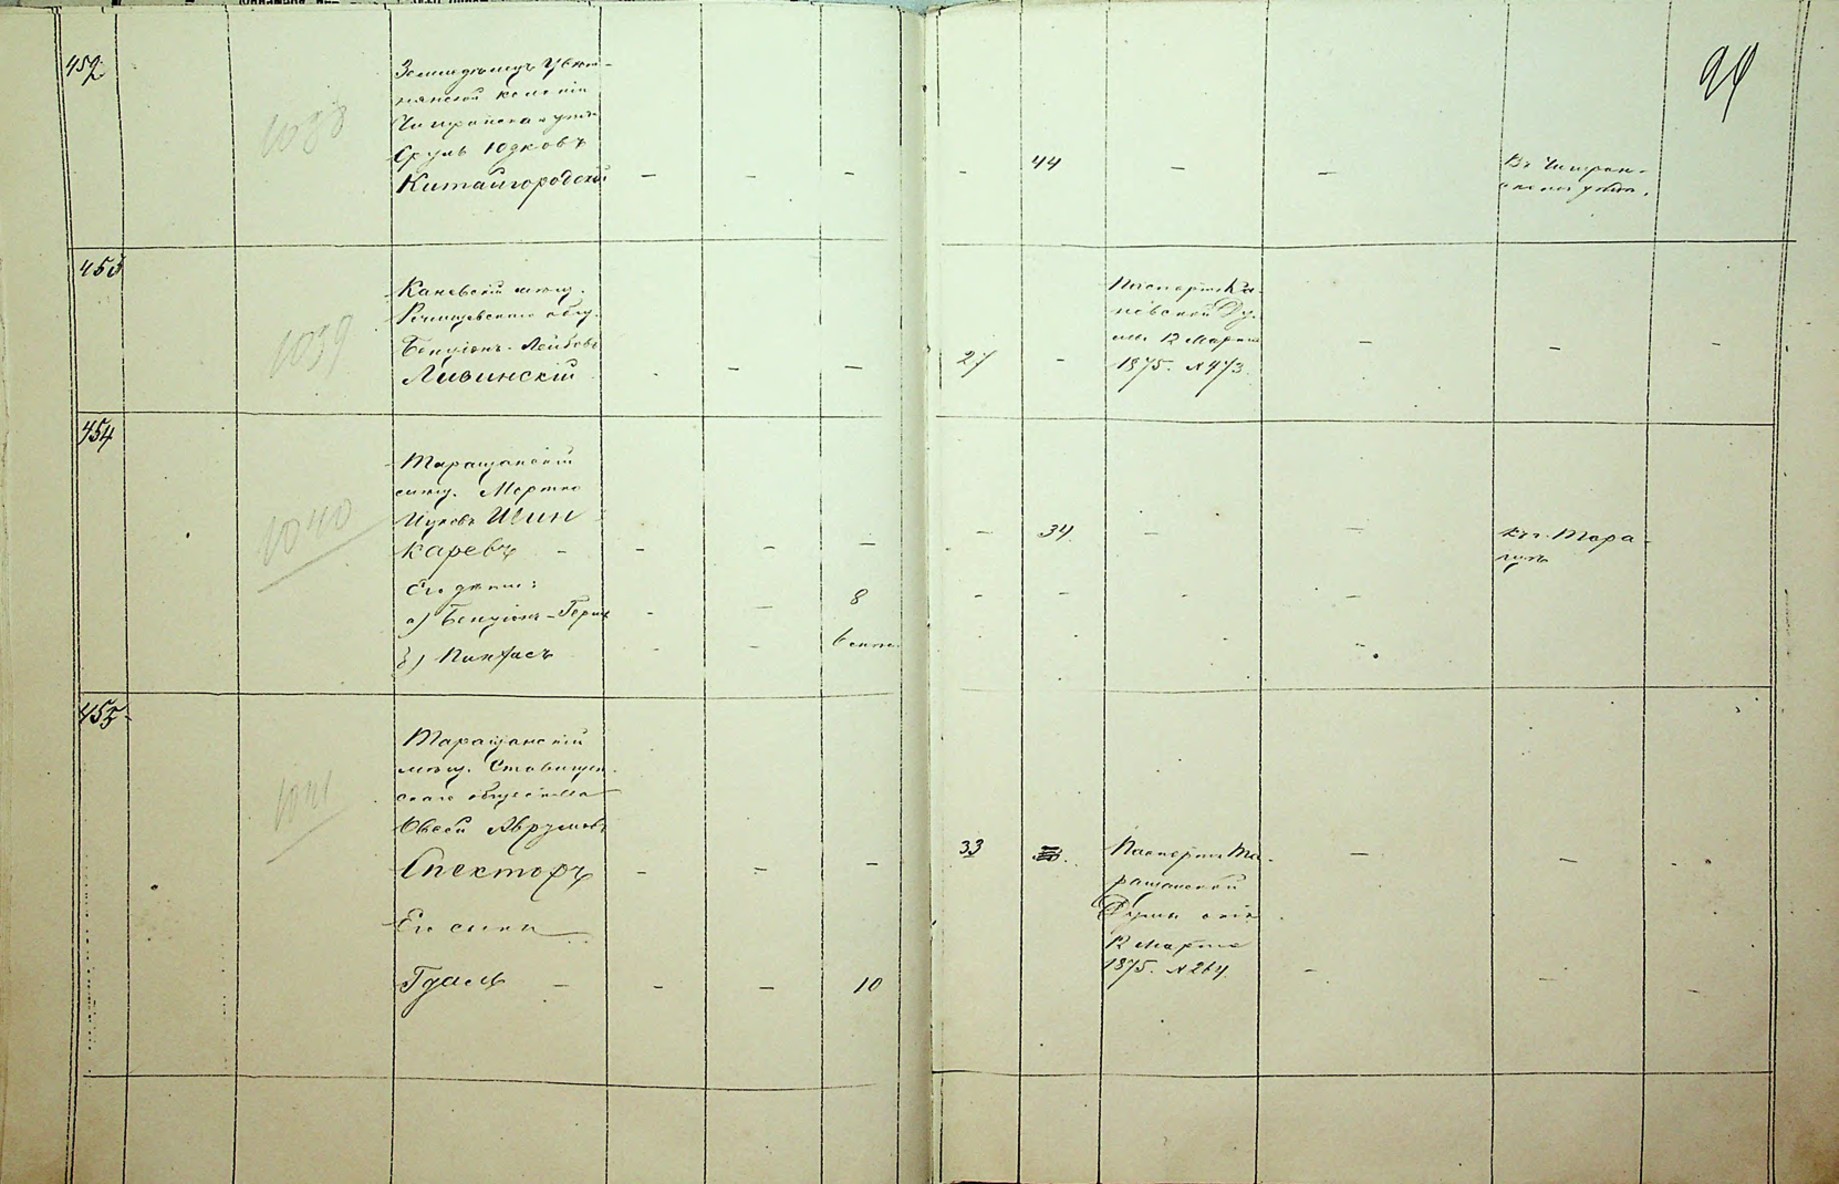 452
1038
Земледѣлецъ
колоніи
Сруль Юдковъ
Китайгородскій — — —
— 44 — —
Въ Чигрин-
скомъ уѣздѣ.
94
453
1039
Каневскій мѣщ.
Бенціонъ Лейбовъ
Ливинскій — —
27 —
Паспортъ Ка-
невской Ду-
мы 12 Марта
1875. № 473.
— — —
454
1040
Таращанскій
мѣщ. Мортко
Ицковъ Шин
каревъ — — — —
— 34. — —
въ г. Тара-
щѣ
Его дѣти:
а) Бенціонъ-Герш — — 8
— — — —
б) Пинхасъ — —
455
1041
Таращанскій
мѣщ. Ставищен-
скаго общества
Овсей Аврумовъ
Спекторъ — — —
33
Паспортъ Та-
ращанской
Думы
12 Марта
1875. № 264.
— — —
Его сынъ
Гдаль — — — 10
— — —